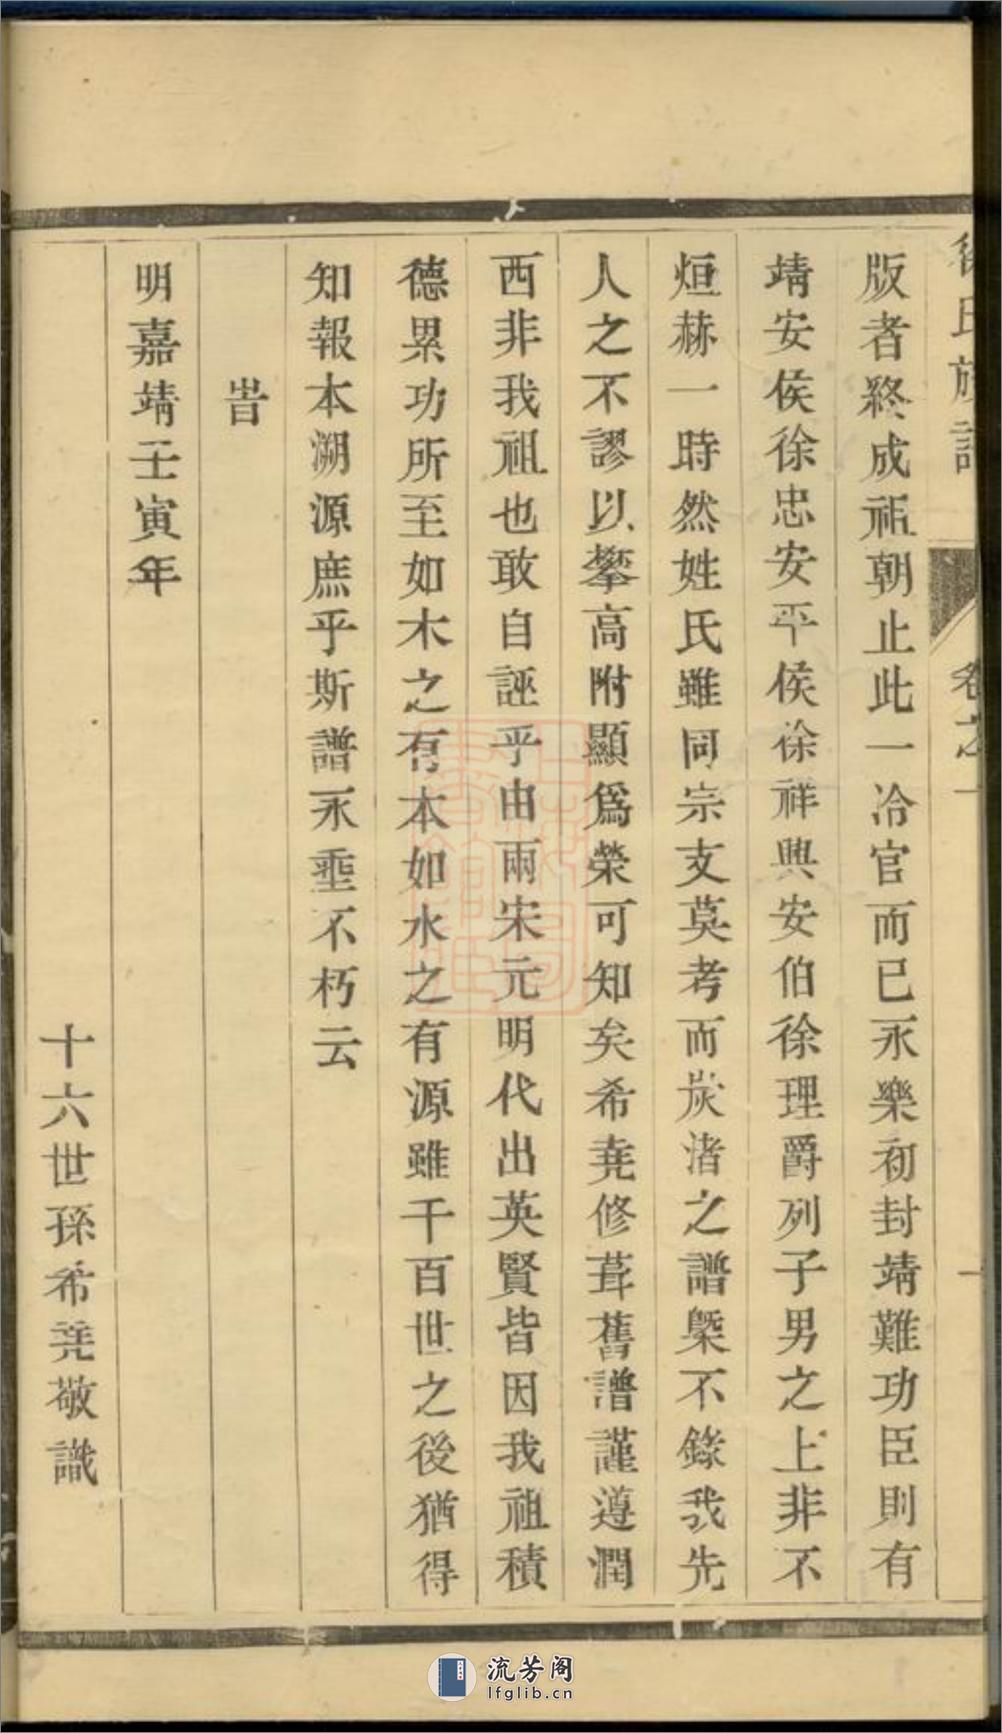 徐氏族譜 卷之一 一
版者終成祖朝止此一冷官而已永樂初封靖難功臣則有
靖安侯徐忠安平侯徐祥興安伯徐理爵列子男之上非不
烜赫一時然姓氏雖同宗支莫考而炭渚之譜槩不錄我先
人之不謬以攀高附顯爲榮可知矣希堯修葺舊譜謹遵潤
西非我祖也敢自誣乎由兩宋元明代出英賢皆因我祖積
德累功所至如木之有本如水之有源雖千百世之後猶得
知報本溯源庶乎斯譜永垂不朽云
旹
明嘉靖壬寅年
十六世孫希堯敬識
流芳阁
lfglib.cn